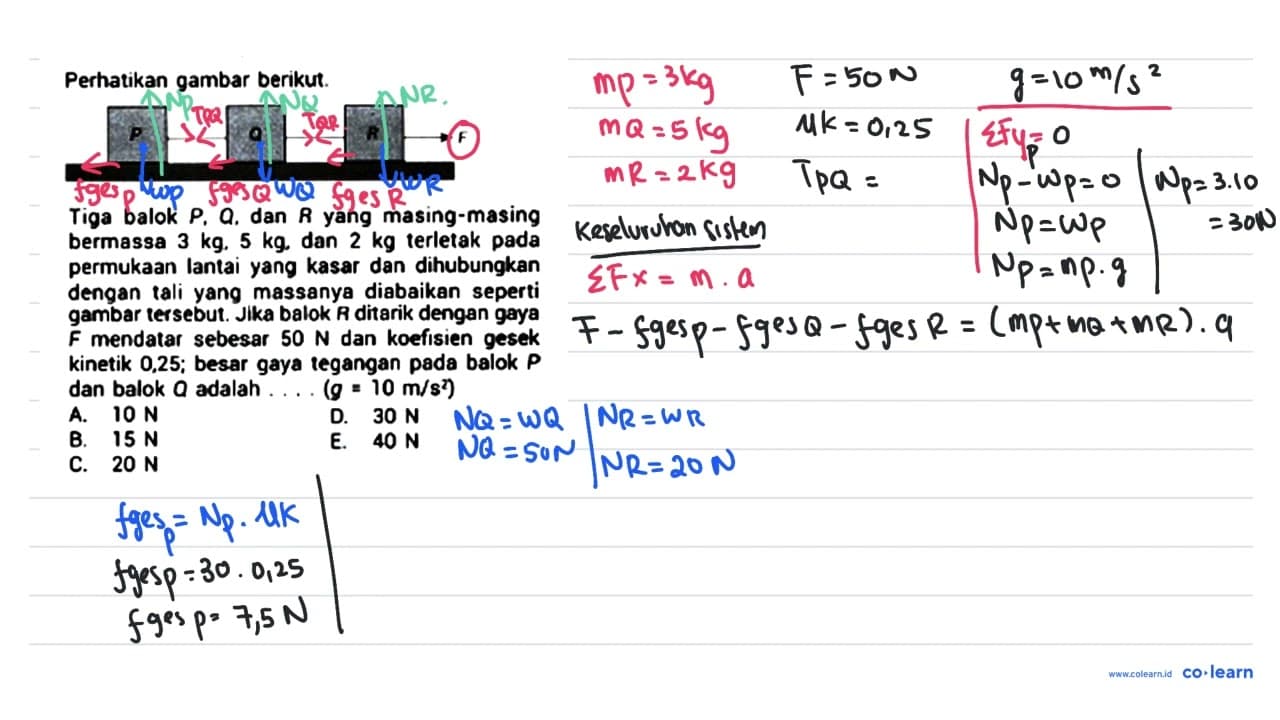 Perhatikan gambar berikut.
NP NQ NR.
TPQ TQR
P Q R F
fges P WP fges Q WQ fges R WR
Tiga balok P, Q, dan R yang masing-masing
bermassa 3 kg, 5 kg, dan 2 kg terletak pada
permukaan lantai yang kasar dan dihubungkan
dengan tali yang massanya diabaikan seperti
gambar tersebut. Jika balok R ditarik dengan gaya
F mendatar sebesar 50 N dan koefisien gesek
kinetik 0,25; besar gaya tegangan pada balok P
dan balok Q adalah . . . . (g = 10 m/s²)
A. 10 N
B. 15 N
C. 20 N
D. 30 N
E. 40 N
mp = 3kg
mQ = 5 kg
mR = 2kg
F = 50 N
μk = 0,25
TPQ =
g = 10 m/s²
ΣFyp = 0
Np - Wp = 0
Np = Wp
Np = mp . g
Np = 3.10
= 30N
Keseluruhan sistem
ΣFx = m . a
F - fgesp - fges Q - fges R = (mp + mQ + mR) . a
NQ = WQ
NQ = 50N
NR = WR
NR = 20 N
fgesp = Np . μk
fgesp = 30 . 0,25
fges p = 7,5 N
www.colearn.id co·learn